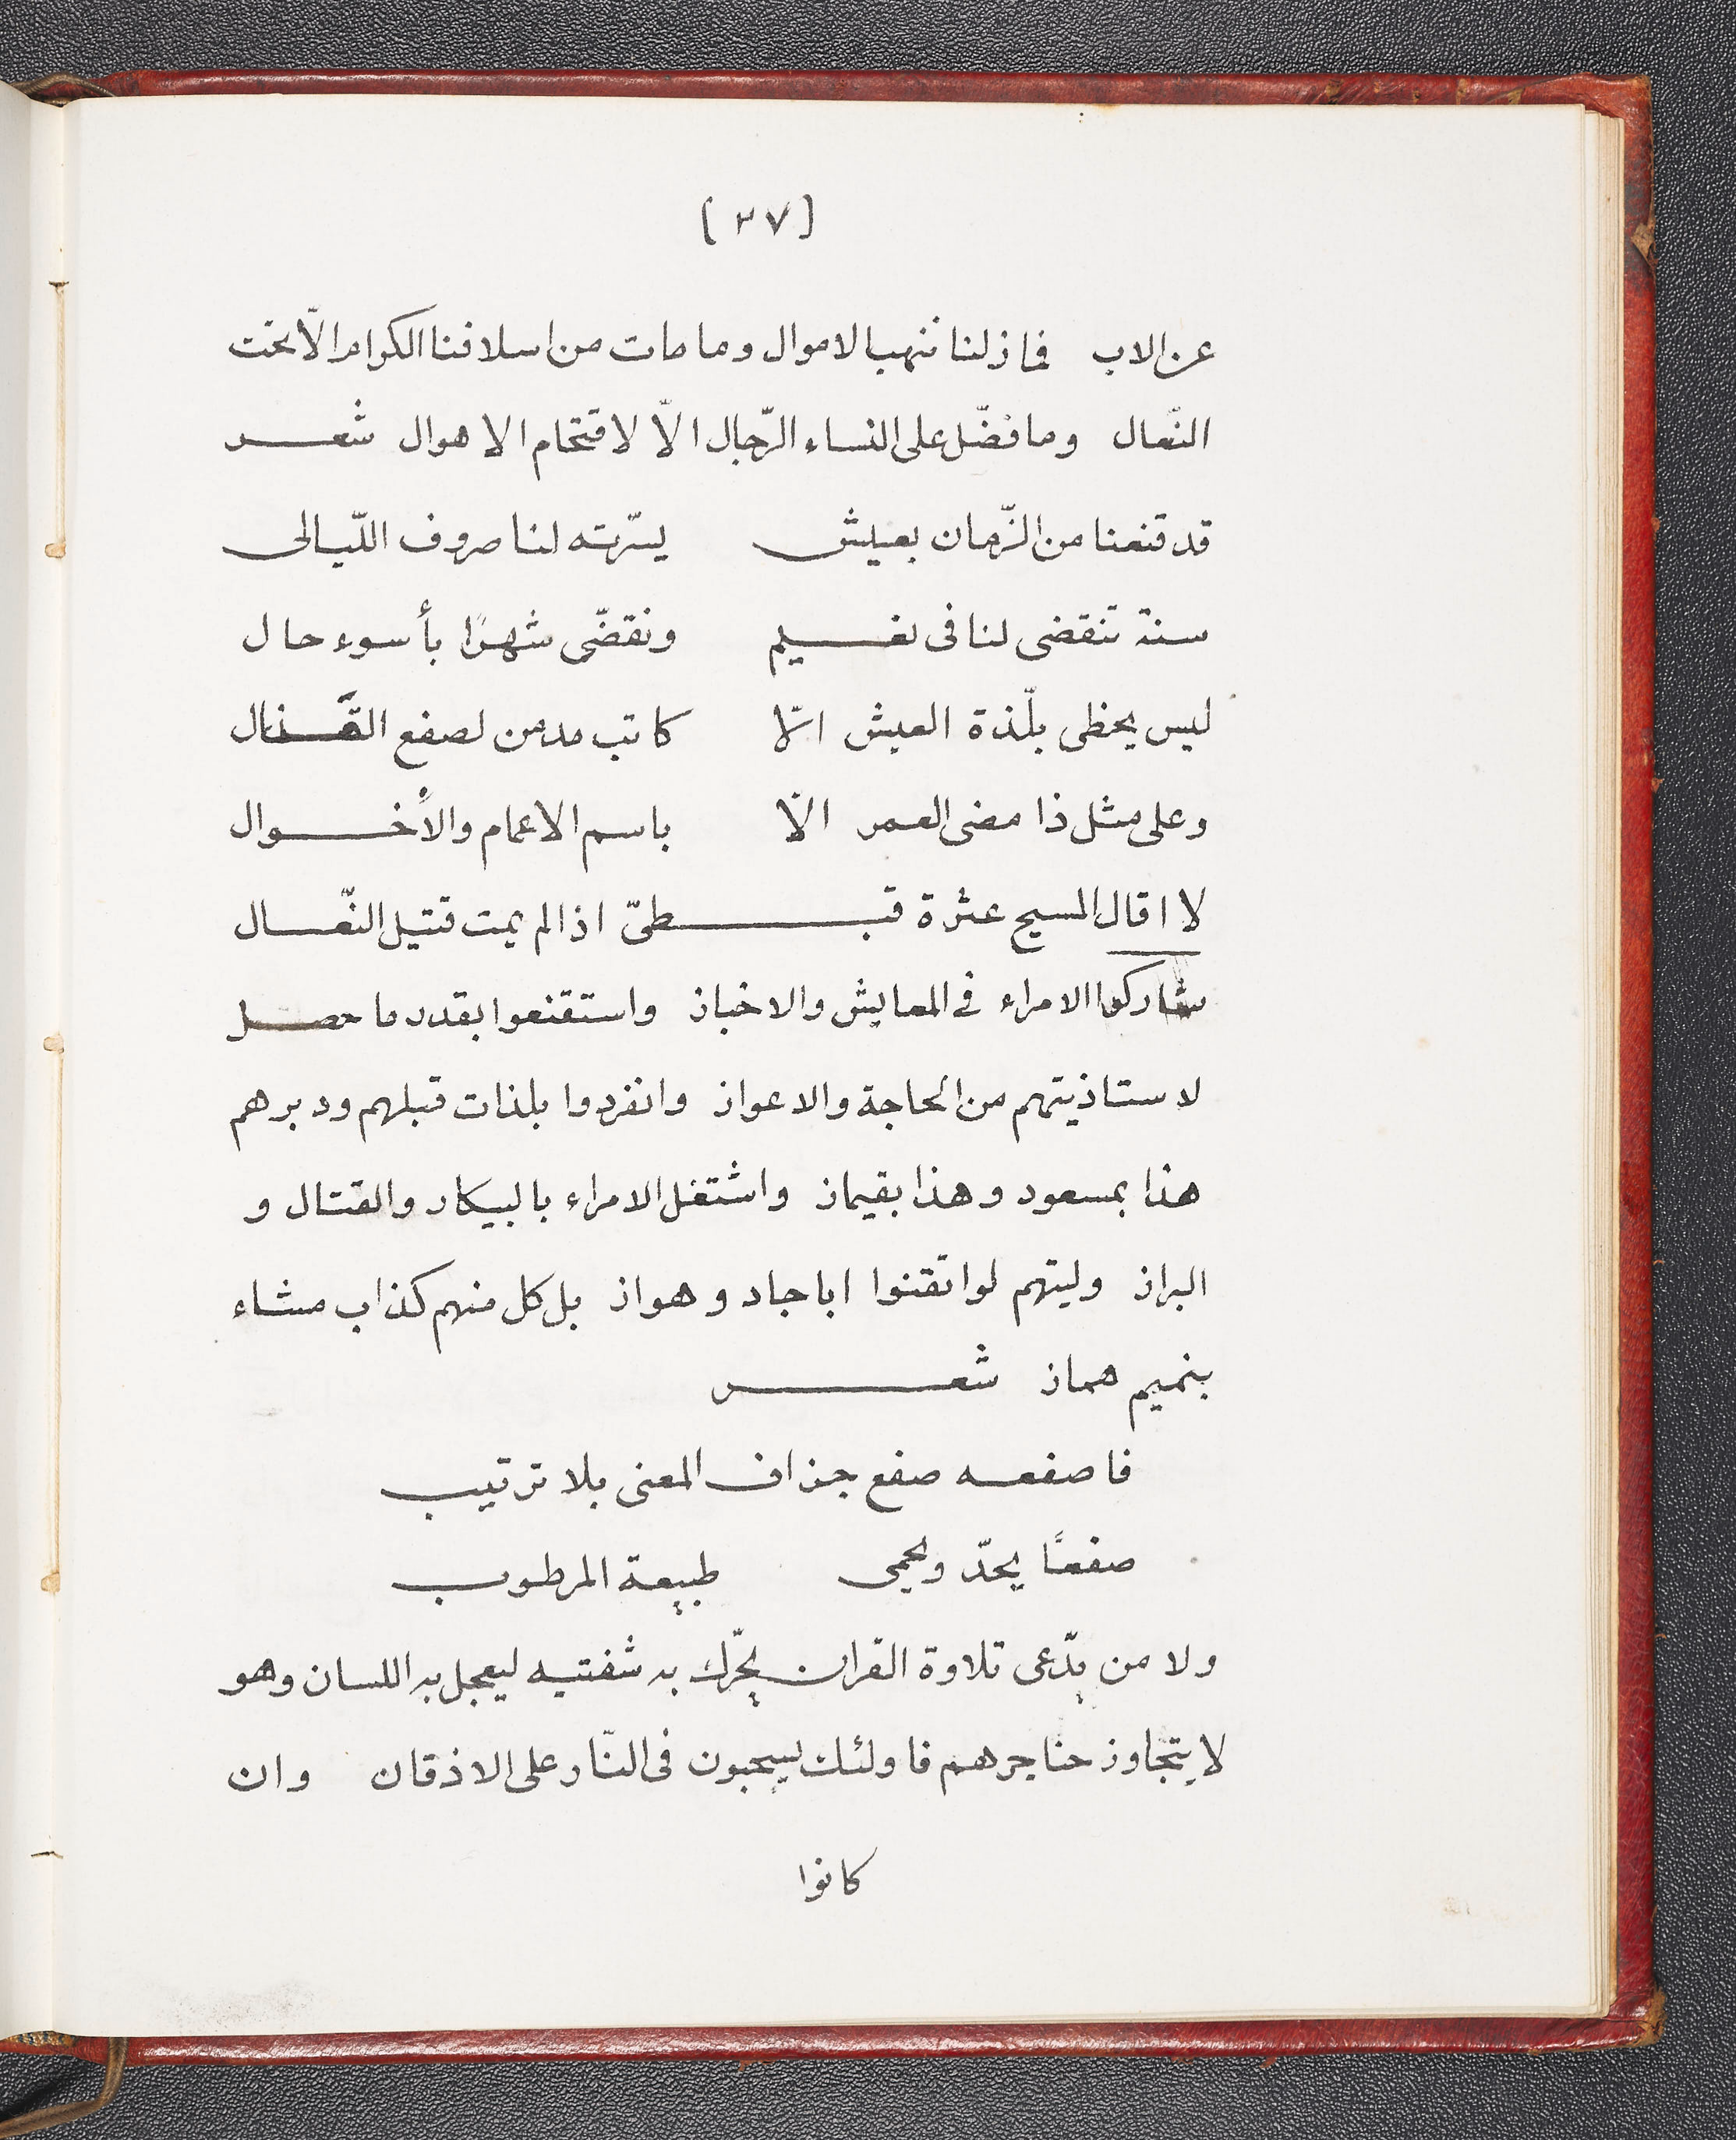 (٣٧)
عن الاب فما زلنا ننهب الاموال وما مات من اسلافنا الكرام الّا تحت
النّعال وما فضّل على النساء الرّجال الّا لاقتحام الاهوال شعر
قد قنعنا من الزّمان بعيش يسّرته لنا صروف اللّيالى
سنة تنقضى لنا فى نعيم ونقضّى شهرًا بأسوء حال
ليس يحظى بلّذة العيش الّا كاتب مدمن لصفع القَذال
وعلى مثل ذا مضى العمر الّا باسم الاعمام والأخوال
لا اقال المسيح عثرة قبطىّ اذا لم يمت قتيل النّعال
شاركوا الامراء فى المعايش والاخباز واستقنعوا بقدر ما حصل
لاستاذيتهم من الحاجة والاعواز وانفردوا بلذات قبلهم ودبرهم
هذا بمسعود وهذا بقيماز واشتغل الامراء بالبيكار والقتال و
البراز وليتهم لو اتقنوا اباجاد وهواز بل كل منهم كذاب مشاء
بنميم هماز شعر
فاصفعه صفع جزاف المعنى بلا ترتيب
صفعًا يحدّ ويحمى طبيعة المرطوب
ولا من يدّعى تلاوة القران يحّرك به شفتيه ليعجل به اللسان وهو
لا يتجاوز حناجرهم فاولئك يسحبون فى النّار على الاذقان وان
كانوا